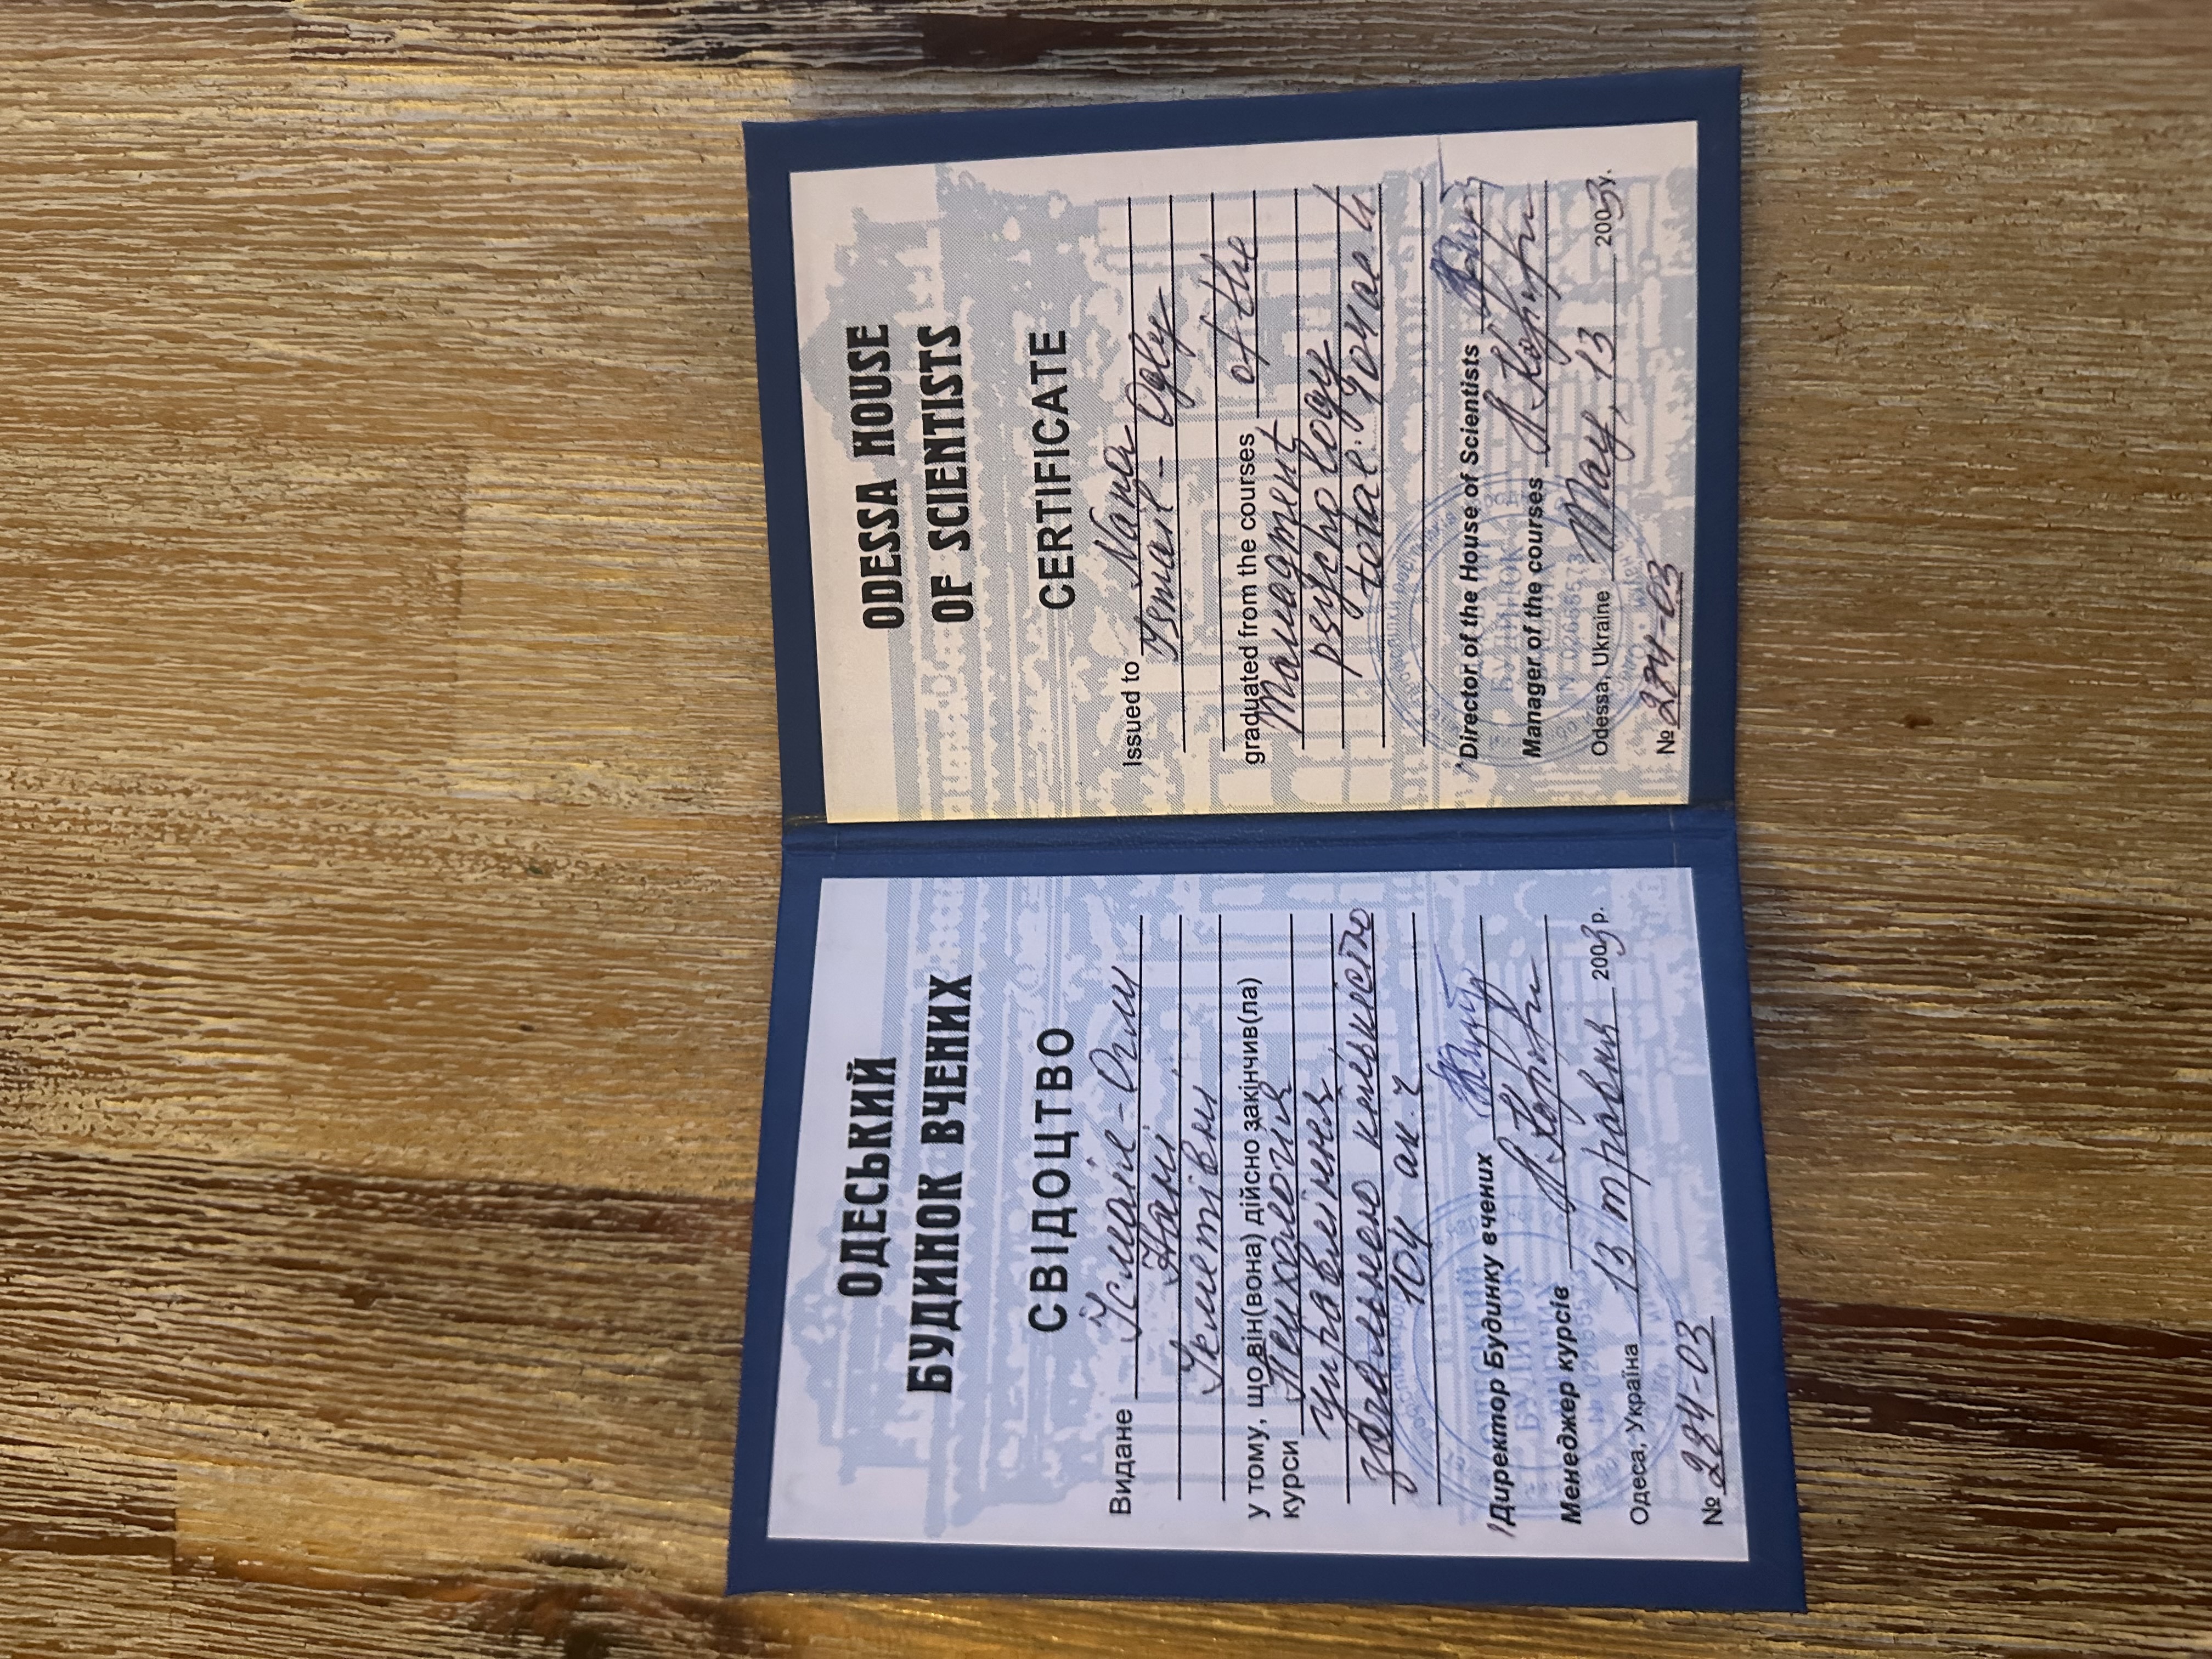 ОДЕСЬКИЙ
БУДИНОК ВЧЕНИХ
СВІДОЦТВО
Видане Ісмаіл-Огли
Нані
у тому, що він(вона) дійсно закінчив(ла)
курси Психологія
управління
загальною кількістю
104 ак. ч
Директор Будинку вчених
Менеджер курсів
Одеса, Україна 13 травня 2003р.
№ 284-03
ODESSA HOUSE
OF SCIENTISTS
CERTIFICATE
Issued to Nana
Ismail-Ogly
graduated from the courses of the
Managment
psychology
total
Director of the House of Scientists
Manager of the courses
Odessa, Ukraine May, 13 2003y.
№ 284-03